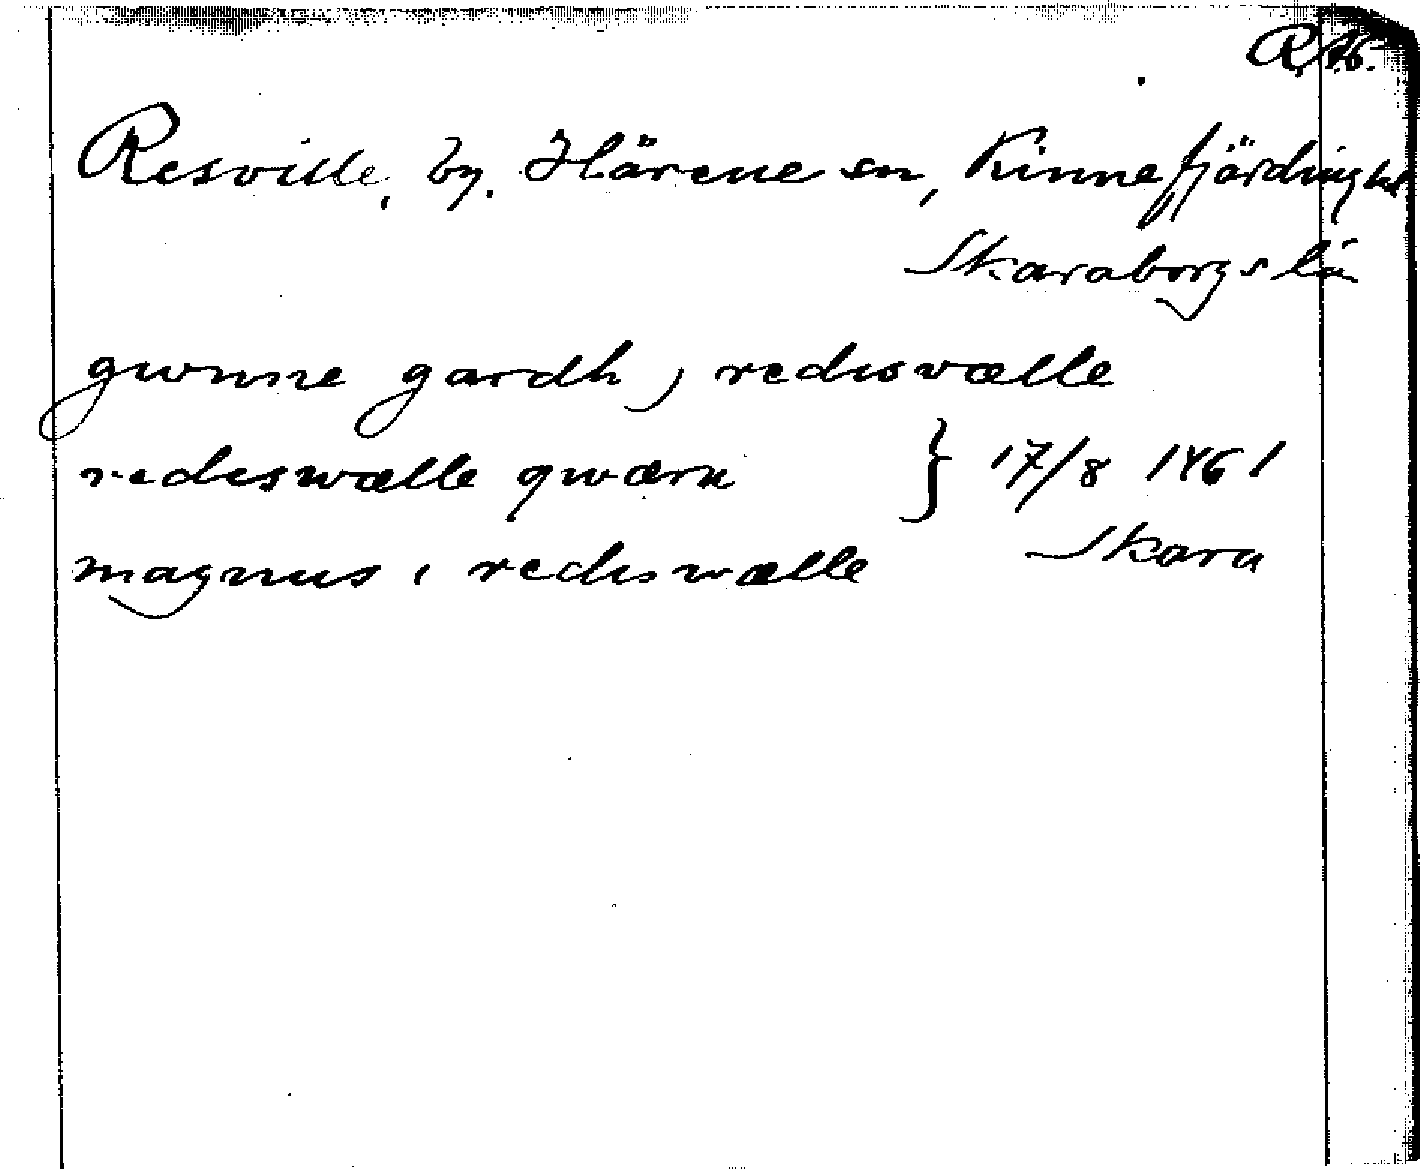 R.A.
Resville, by. Härene sn, Kinnefjärdings hd
Skaraborgs län
gwnne gardh j rediswælle
rediswælle qwærn } 17/8 1461
magnus i rediswælle Skara